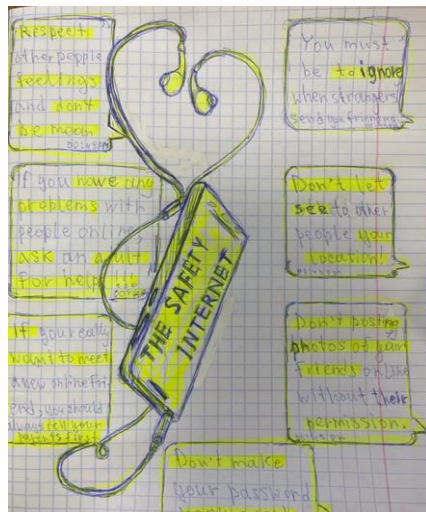 Respect
other people
feelings
and don't
be mean
You must
be to ignore
when strangers
send you
If you have any
problems with
people online,
ask an adult
for help!!!
Don't let
see to other
people your
location!
THE SAFETY
INTERNET
If you really
want to meet
a new online fri-
end, you should
always tell your
parents first
Don't posting
photos of your
friends online
without their
permission.
Don't make
your password